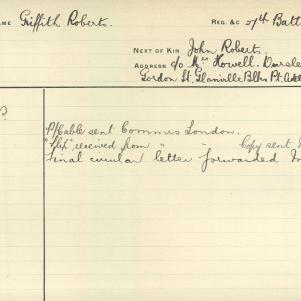 AME Griffith Roberts. REG. &C 27th Batt
NEXT OF KIN John Robert.
ADDRESS c/o Mrs Howell.
Gordon St. Glanville Blks Pt. Adel
P/Cable sent Commrs London.
"Slip" received from " " Copy sent
Final circular letter forwarded